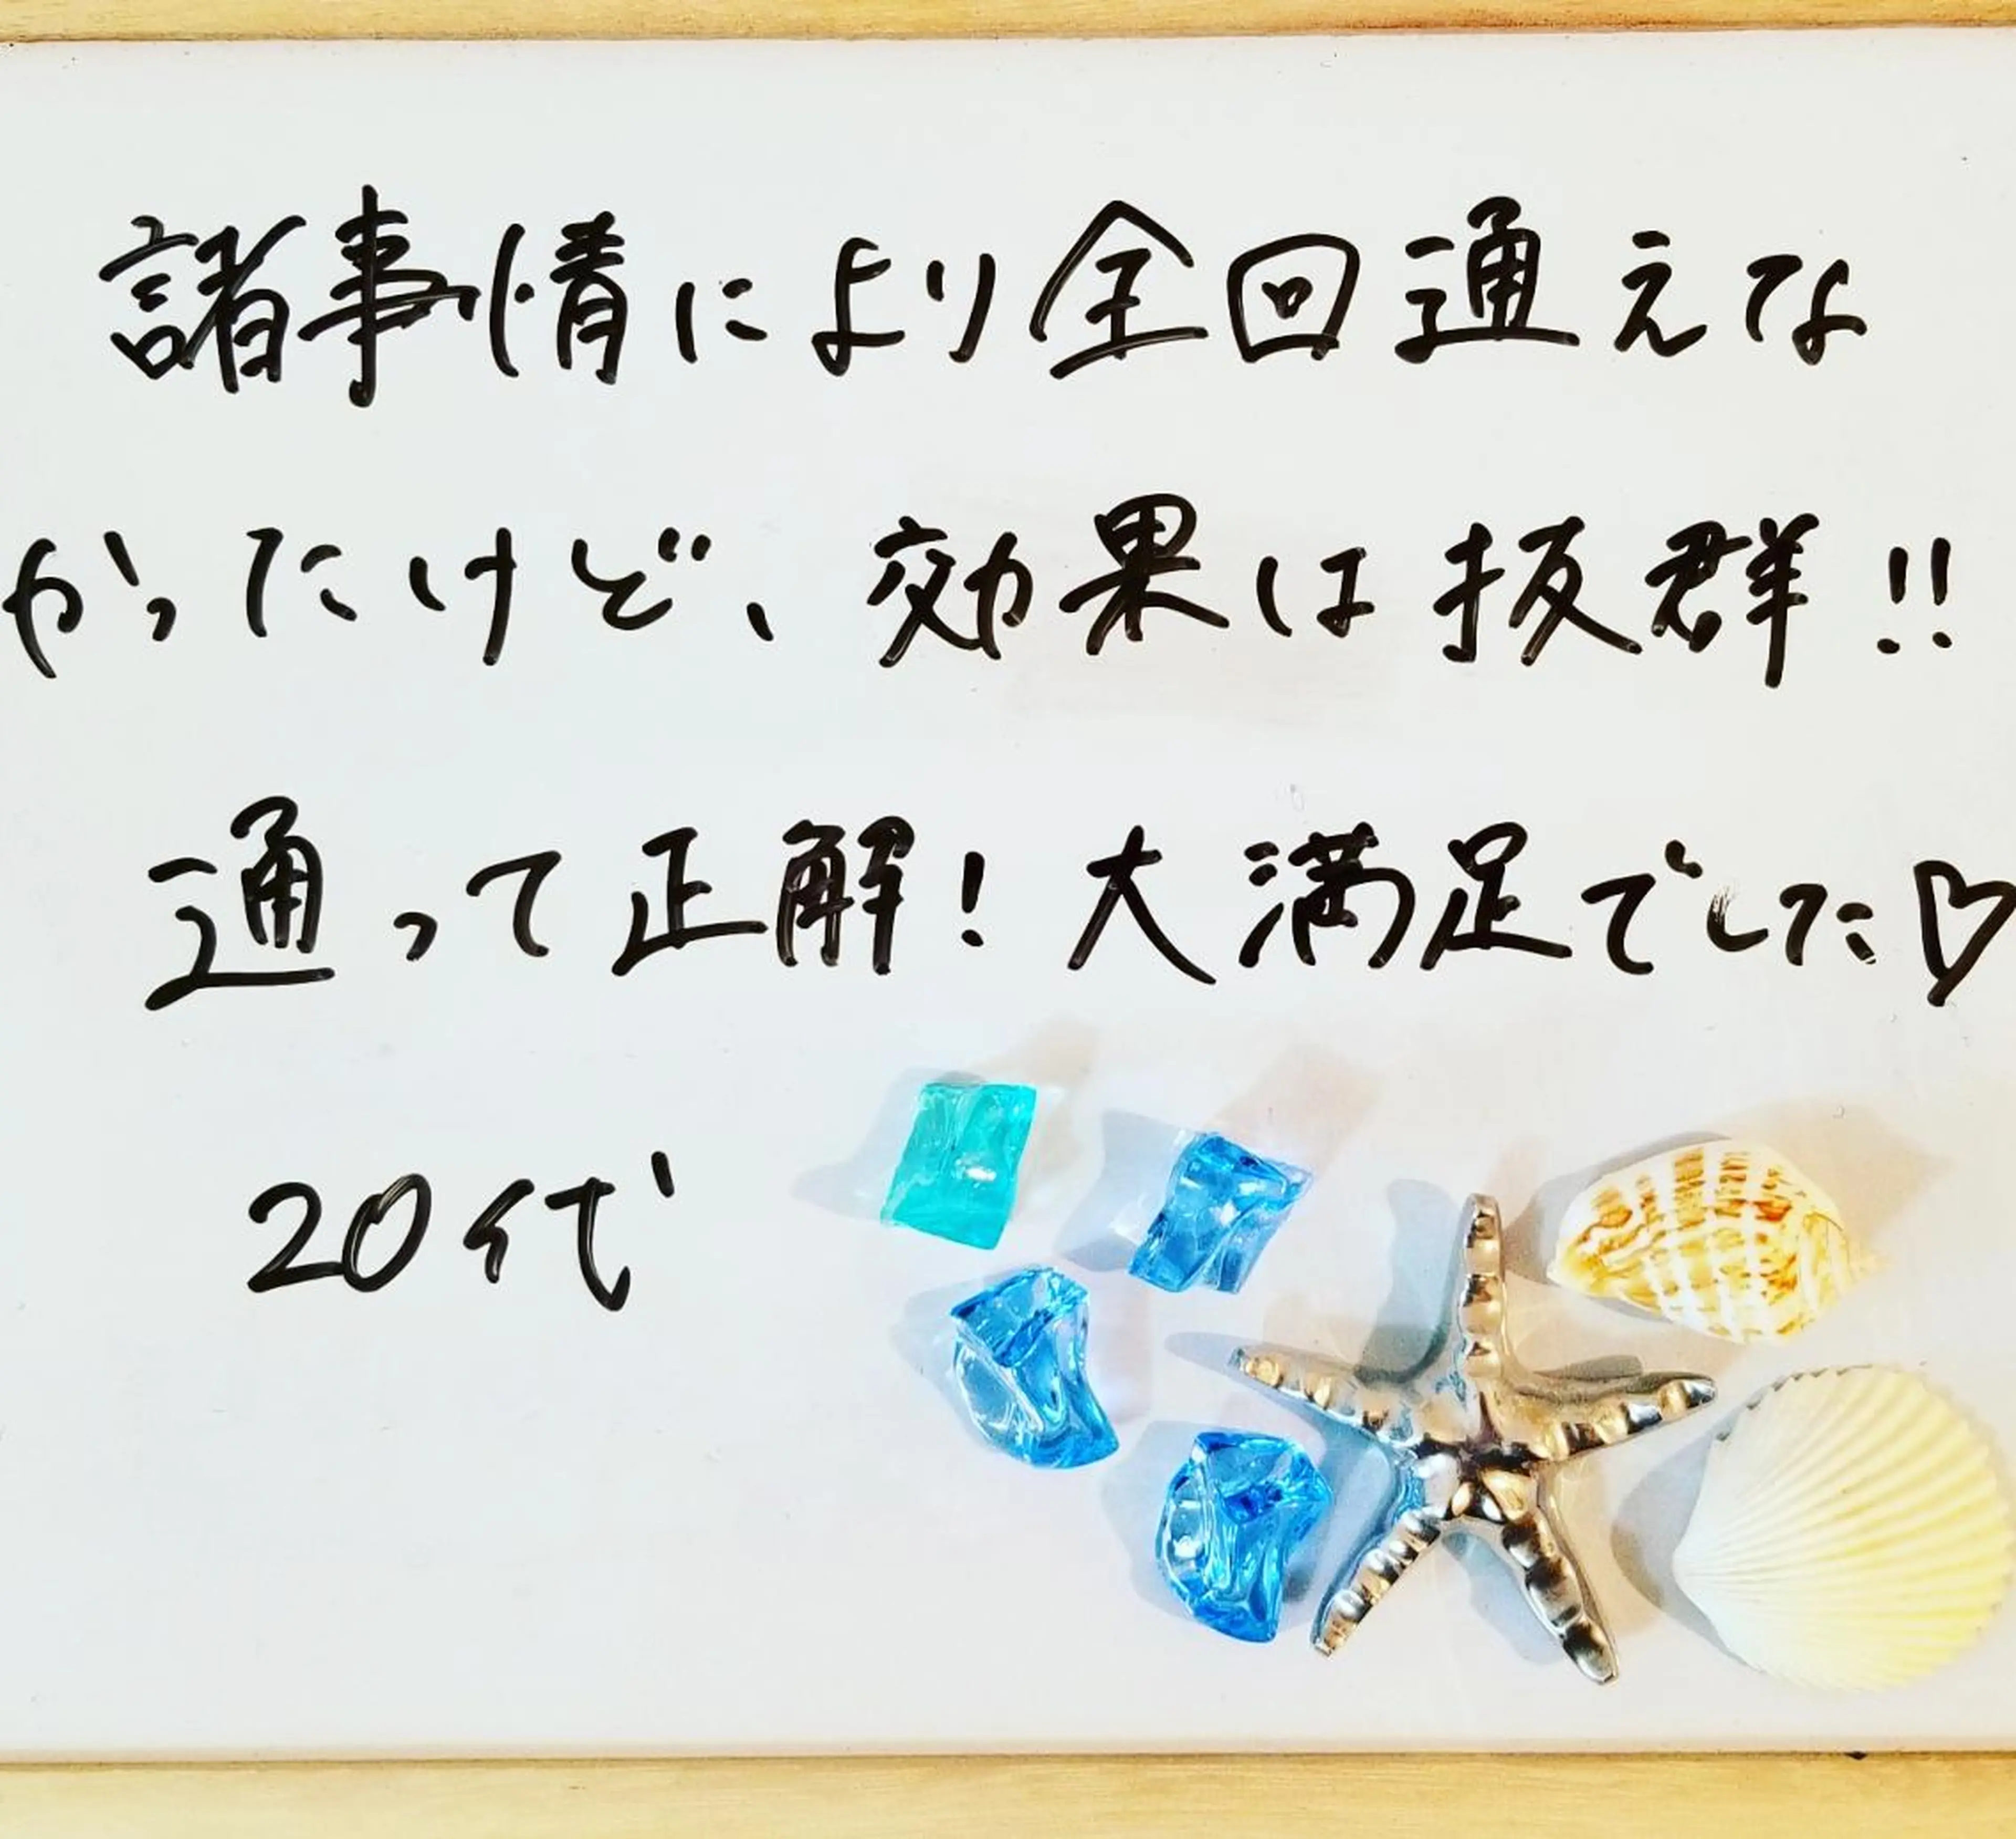 諸事情により全回通えな
かったけど、効果は抜群!!
通って正解!大満足でした♡
20代